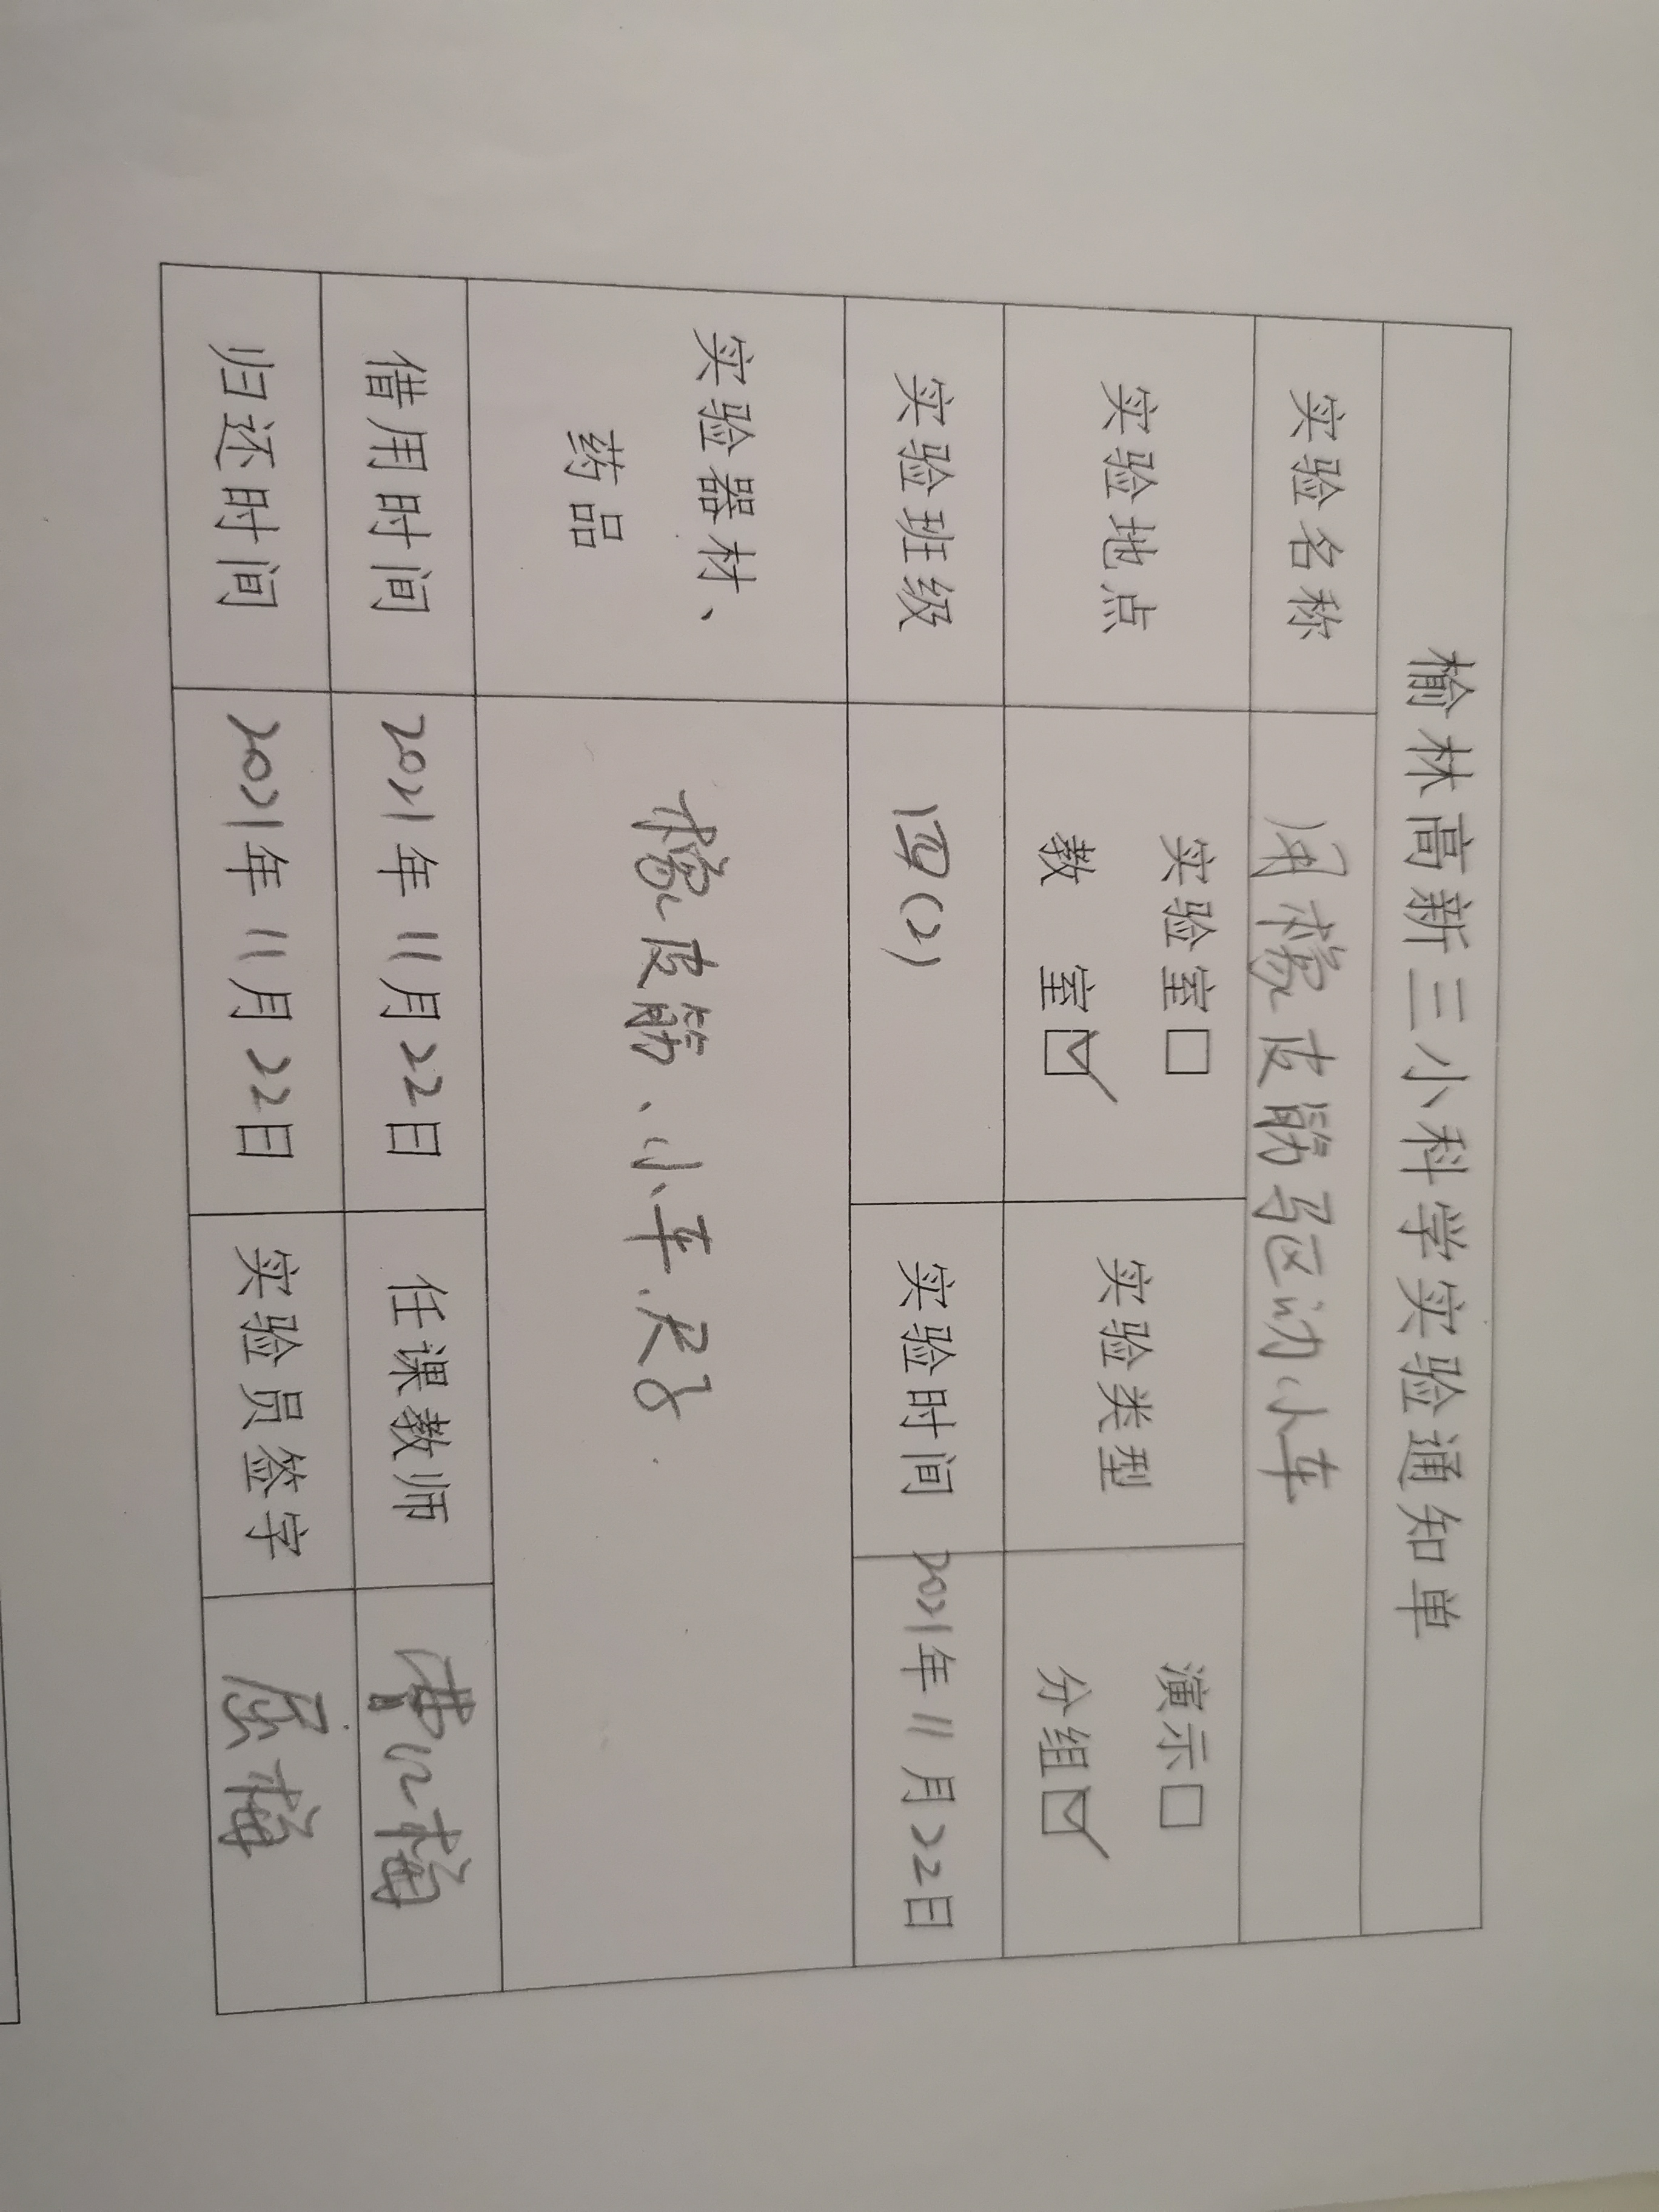 榆林高新三小科学实验通知单
实验名称 用橡皮筋驱动小车
实验地点 实验室□ 教 室☑ 实验类型 演示□ 分组☑
实验班级 四(2) 实验时间 2021年11月22日
实验器材、药品 橡皮筋、小车、尺子
借用时间 2021年11月22日 任课教师 曹江梅
归还时间 2021年11月22日 实验员签字 梅